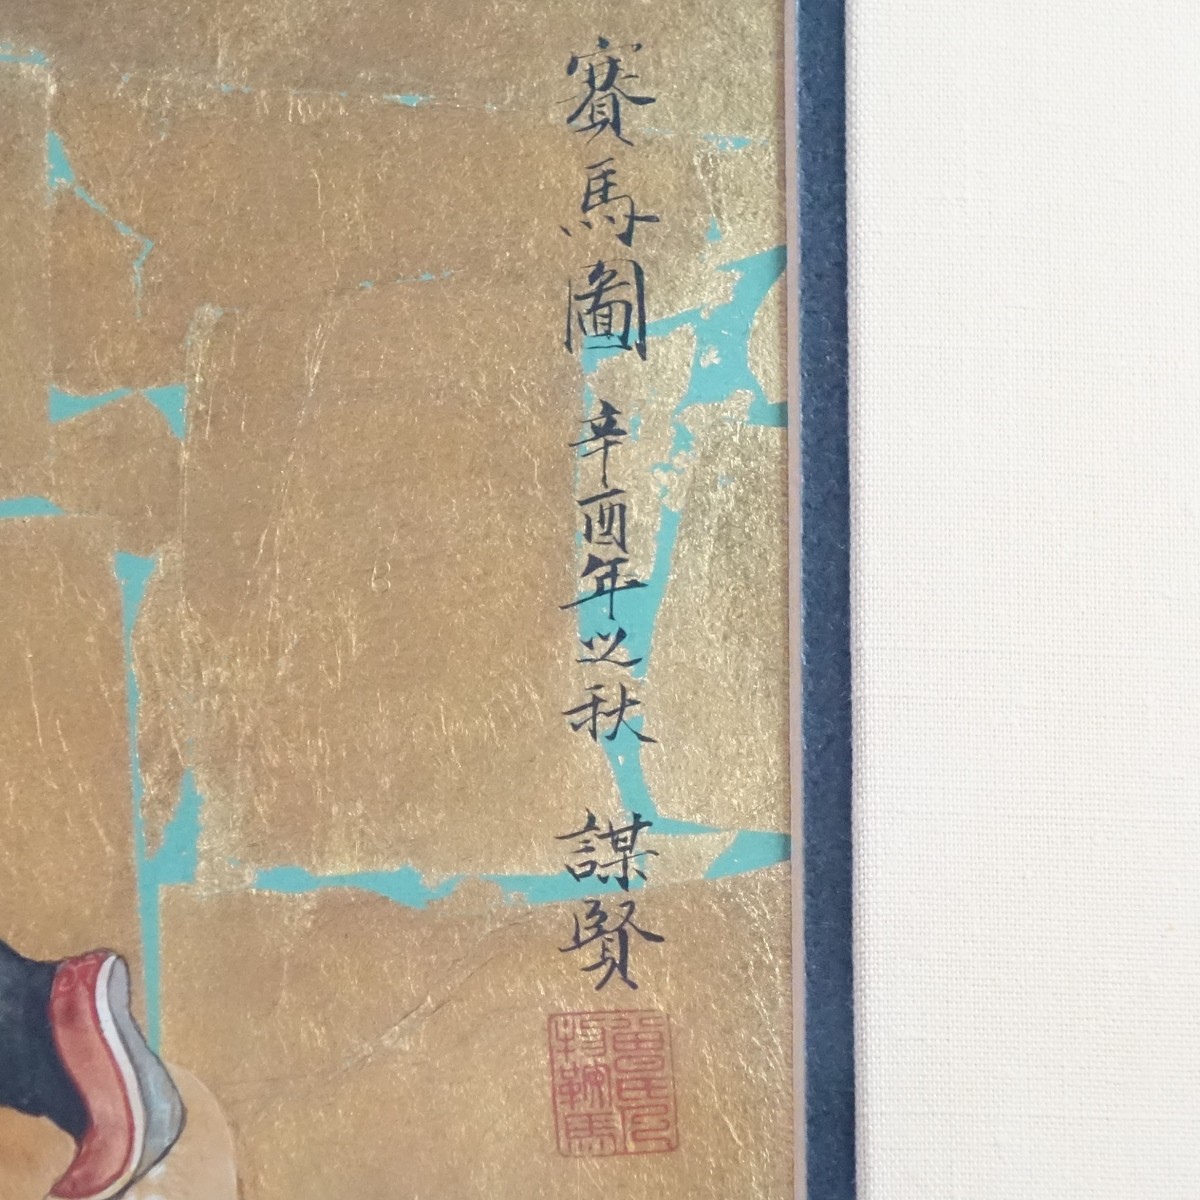 賽馬圖 辛酉年之秋 謀賢